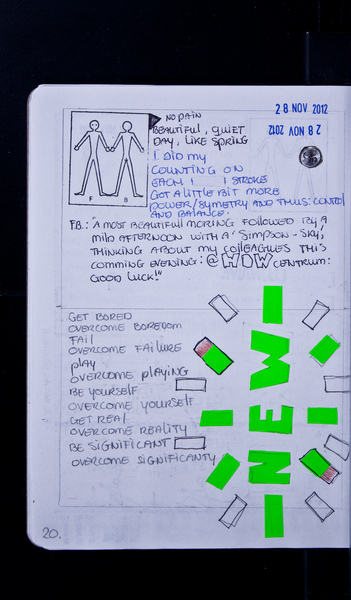 28 NOV 2012
28 NOV 2012
NO PAIN
BEAUTIFUL, QUIET
DAY, LIKE SPRING
I DID MY
COUNTING ON
EACH 1 1 STROKE
GOT A LITTLE BIT MORE
POWER/SYMETRY AND THUS: CONTROL
AND BALANCE.
F B
F.B.: "A MOST BEAUTIFUL MORING FOLLOWED BY A
MILD AFTERNOON WITH A 'SIMPSON-SKY,
THINKING ABOUT MY COLLEAGUES THIS
COMMING EVENING: @ WDW CENTRUM:
GOOD LUCK!"
GET BORED
OVERCOME BOREDOM
FAIL
OVERCOME FAILURE
PLAY
OVERCOME PLAYING
BE YOURSELF
OVERCOME YOURSELF
GET REAL
OVERCOME REALITY
BE SIGNIFICANT
OVERCOME SIGNIFICANTY
NEW
20.